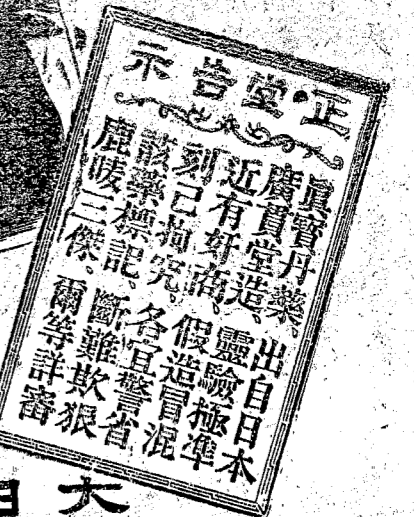 正•堂告示
眞寶丹藥、出自日本
廣貫堂造、靈驗極準
近有奸商、假造冒混
刻己拘究、各宜警省
該藥標記、斷難欺狠
鹿唛三傑、爾等詳審
大日